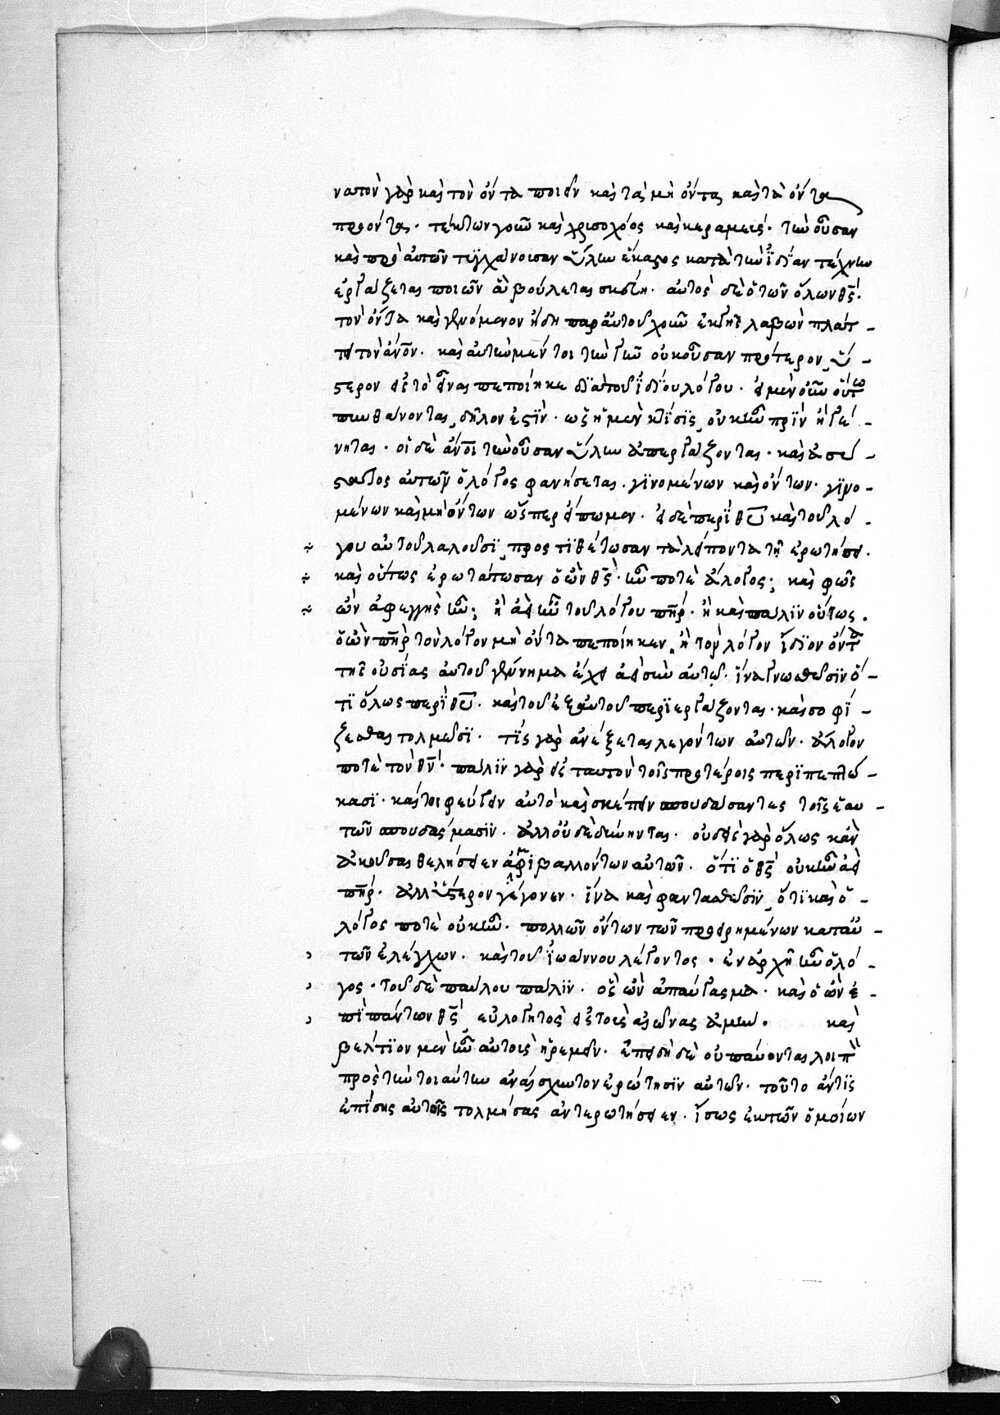 νατὸν γὰρ καὶ τὸν ὄντα ποιεῖν καὶ τὰ μὴ ὄντα, καὶ τὰ ὄντα
προόντα. τέκτων γοῦν καὶ χρισοχόος καὶ κεραμεὺς. τὴν οὖσαν
καὶ πρὸ αὐτῶν τυγχάνοισαν ὕλην ἕκαστος κατὰ τὴν ἰδίαν τέχνην
ἐργάζεται ποιῶν ἃ βούλεται σκεύη. αὐτὸς δὲ ὁ τῶν ὅλων θς̅.
τὸν ὄντα καὶ γενόμενον ἤδη παρ' αὐτοῦ χοῦν ἐκ γῆς λαβὼν πλάτ-
τει τὸν ἄν̅ον. καὶ αὐτὴν μέντοι τὴν γῆν οὐκ οὖσαν πρότερον, ὕ-
στερον εἰς τὸ εἶναι πεποίηκε διὰ τοῦ ἰδίου λόγου. εἰ μὲν οὖν οὕτω
πυνθάνονται, δῆλον ἐστὶν. ὡς ἡ μὲν κτίσις, οὐκ ἦν πρὶν ἢ γέ-
νηται. οἱ δὲ ἄν̅οι τὴν οὖσαν ὕλην ἀπεργάζονται. καὶ ἀσύ-
στατος αὐτῶν ὁ λόγος φανήσεται. γινομένων καὶ ὄντων. γινο-
μένων καὶ μὴ ὄντων ὥσπερ εἴπωμεν. εἰ δὲ περὶ θυ̅ καὶ τοῦ λό
γου αὐτοῦ λαλοῦσι, προστιθέτωσαν τὰ λείποντα τῇ ἐρωτήσει.
καὶ οὕτως ἐρωτάτωσαν ὁ ὢν θς̅. ἦν ποτὲ ἄλογος; καὶ φῶς
ὢν ἀφεγγὴς ἦν; ἢ ἀεὶ ἦν τοῦ λόγου πηρ̅. ἢ καὶ πάλιν οὕτως.
ὁ ὢν πηρ̅ τὸν λόγον μὴ ὄντα πεποίηκεν, ἢ τὸν λόγον ἴδιον ὄντα
τῆς οὐσίας αὐτοῦ γέννημα ἔχει ἀεὶ σὺν αὐτῷ. ἵνα γνωσθῶσιν ὅ-
τι ὅλως περὶ θυ̅. καὶ τοῦ ἐξ αὐτοῦ περιεργάζονται. καὶ σοφί-
ζεσθαι τολμῶσι. τίς γὰρ ἀνέξεται λεγόντων αὐτῶν. ἄλογον
ποτὲ τὸν θν̅. πάλιν γὰρ εἰς ταυτὸν τοῖς προτέροις περιπεπτώ-
κασι. καίτοι φεύγειν αὐτὸ καὶ σκέπειν σπουδάσαντες τοῖς ἑαυ-
τῶν σπουδάσμασιν. ἀλλ' οὐ δεδύνηνται. οὐδεὶς γὰρ ὅλως κἂν
ἀκοῦσαι θελήσειεν ἀμφιβαλλόντων αὐτῶν. ὅτι ὁ θς̅ οὐκ ἦν ἀεὶ
πηρ̅. ἀλλ' ὕστερον γέγονεν. ἵνα καὶ φαντασθῶσιν, ὅτι καὶ ὁ
λόγος ποτὲ οὐκ ἦν. πολλῶν ὄντων τῶν προειρημένων κατ' αὐ-
τῶν ἐλέγχων. καὶ τοῦ ἰωάννου λέγοντος. ἐν ἀρχῇ ἦν ὁ λό-
γος. τοῦ δὲ παύλου πάλιν. ὃς ὢν ἀπαύγασμα. καὶ ὁ ὢν ἐ-
πὶ πάντων θς̅ εὐλογητὸς εἰς τοὺς αἰῶνας ἀμήν. καὶ
βέλτιον μὲν ἦν αὐτοῖς ἠρεμεῖν. ἐπειδὴ δὲ οὐ παύονται λοιπ
πρὸς τὴν τοιαύτην ἀναίσχυντον ἐρώτησιν αὐτῶν. τοῦτο ἄν τις
ἐπίσης αὐτοῖς τολμήσας ἀντερωτήσειεν. ἴσως ἐκ τῶν ὁμοίων